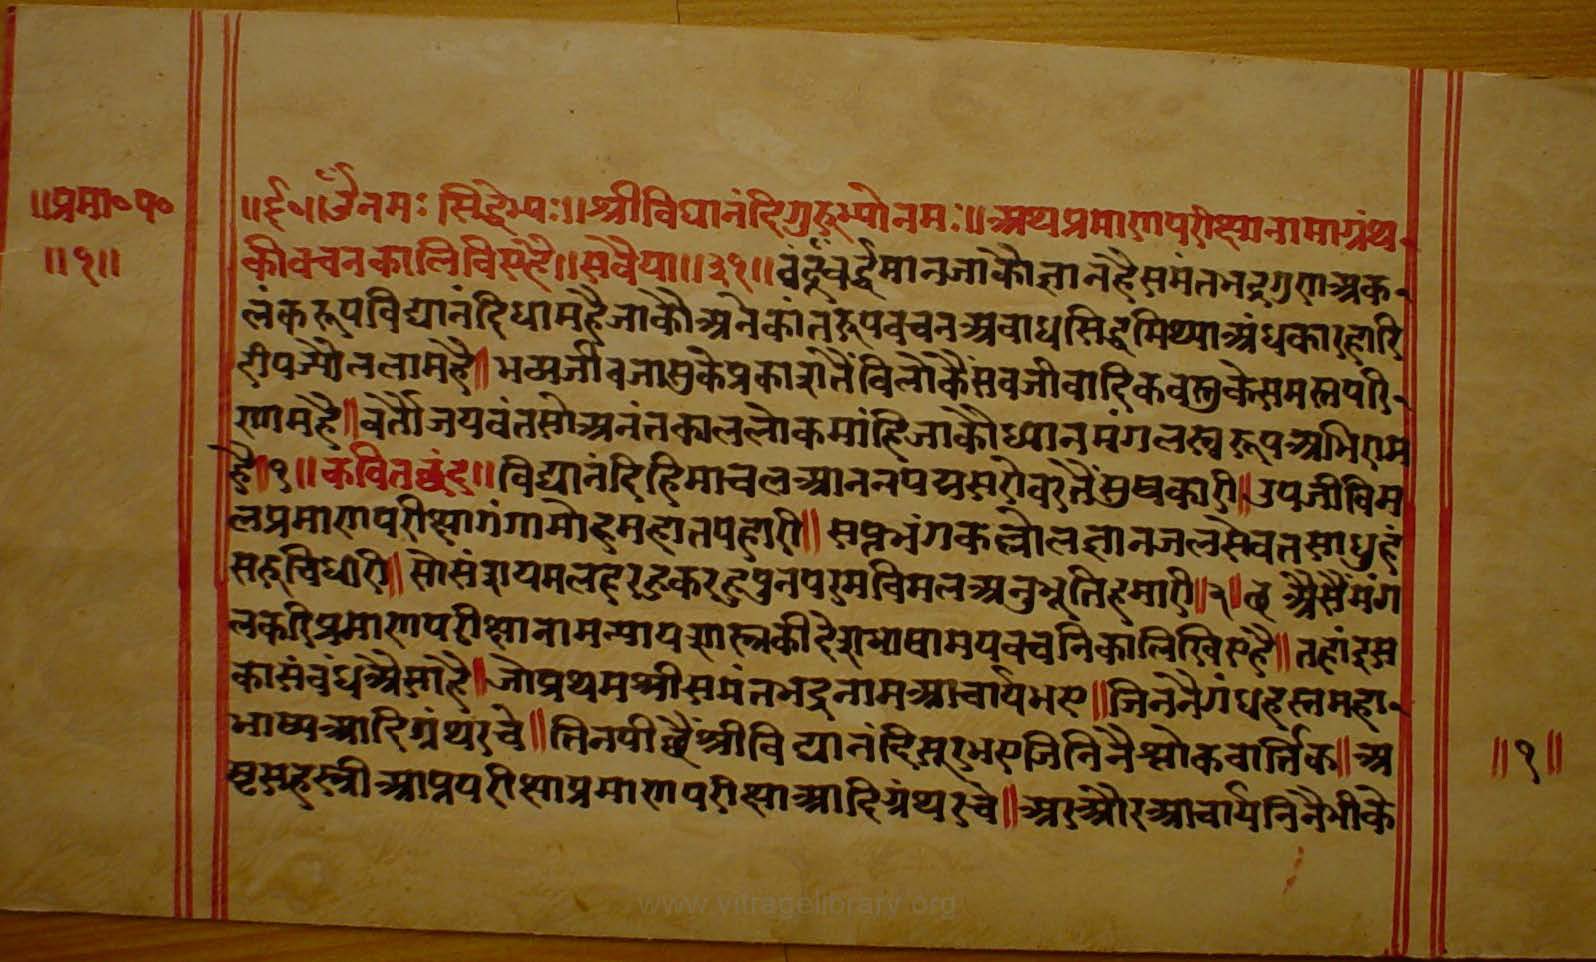 ॥प्रमा०प०
॥१॥
॥ई०॥ॐनमः सिद्धेभ्यः॥श्रीविद्यानंदिगुरूभ्योनमः॥अथप्रमाणपरीक्षानामाग्रंथ
कीवचनकालिविएहै॥सवैया॥३१॥वंदूंवर्द्धमानजाकौज्ञानहैसमंतभद्रगुणअक
लंकरूपविद्यानंदिधामहैजाकौअनेकांतरूपवचनअबाधसिद्धमिथ्याअंधकारहारि
दीपज्यौललामहै॥भव्यजीवजासुकेप्रकाशतैंविलोकैंसबजीवादिकवस्तुकेसमस्तपरि
णामहै॥वर्तौजयवंतसोअनंतकाललोकमांहिजाकौध्यानमंगलस्वरूपअभिराम
है॥१॥कवितछंद॥विद्यानंदिहिमाचलआननपद्मसरोवरतैंसुखकारी॥उपजीविम
लप्रमाणपरीक्षागंगामोहमहातपहारी॥सप्तभंगकल्लोलज्ञानजलसेवतसाधुहं
सरुचिधारी॥सोसंशयमलहरहुकरहुपुनपरमविमलअनुभूतिहमारी॥२॥ अैसैंमंग
लकरिप्रमाणपरीक्षानामन्यायशास्त्रकीदेशभाषामयवचनिकालिखिएहै॥तहांइस
कासंबंधअैसाहै॥जोप्रथमश्रीसमंतभद्रनामआचार्यभए॥जिननैगंधहस्तमहा
भाष्यआदिग्रंथरचे॥तिनपीछैंश्रीविद्यानंदिसूरभएजितिनैश्लोकवार्त्तिक॥अ
ष्टसहस्त्रीआप्तपरीक्षाप्रमाणपरीक्षाआदिग्रंथरचे॥अरऔरआचार्यनिनैभीके
॥१॥
www.vitragelibrary.org